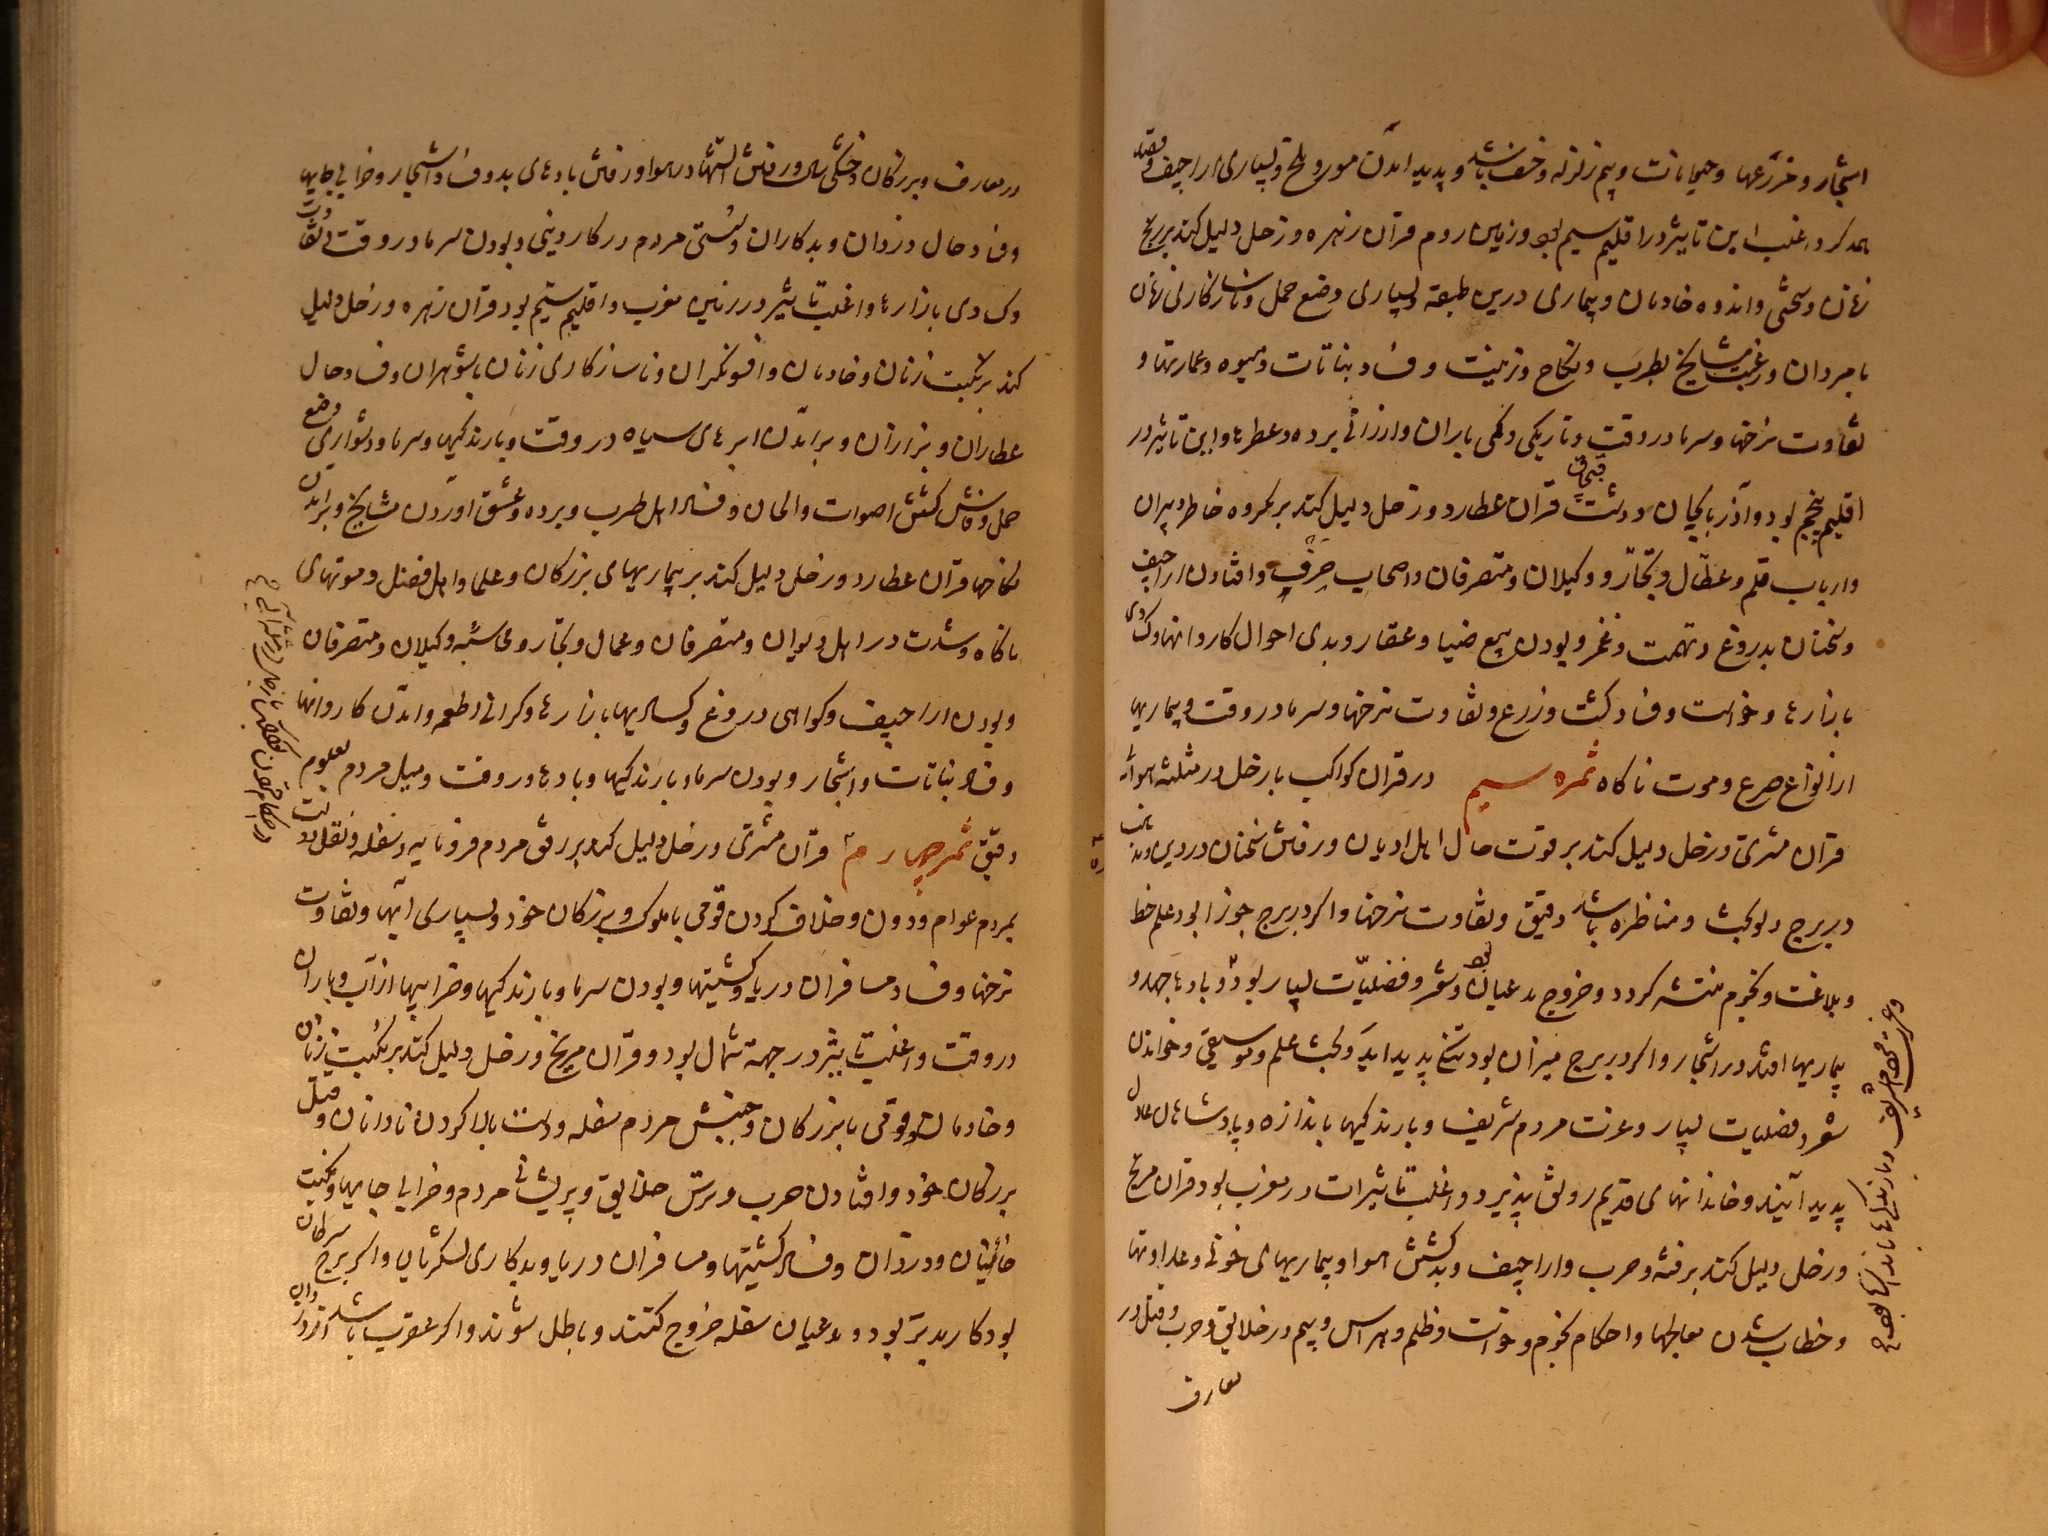 اشجار و مزرعها و حیوانات و بیم زلزله و خسف باشد و پدید آمدن مور و ملخ و بسیاری اراجیف و قصد
اغلب این تاثیر در اقلیم سیم بود و زمین روم قران زهره و زحل دلیل کند بر رنج
زنان و سختی و اندوه خادمان و بیماری درین طبقه و بسیاری وضع حمل و ناسازکاری زنان
با مردان و رغبت مشایخ بطرب و نکاح و زینت و فساد نباتات و میوه و عمارتها و
تفاوت نرخها و سرما در وقت و تاریکی و کمی باران و ارزانی برده و عطرها و این تاثیر در
اقلیم پنجم بود و آذربایجان و دشت قبچاق قران عطارد و زحل دلیل کند بر مکروه خاطر دبیران
و ارباب قلم و عمّال و تجّار و وکیلان و متصرفان و اصحاب حِرَف و افتادن اراجیف
و سخنان بدروغ و تهمت و غمز و بودن بیع ضیاع و عقار و بدی احوال کاروانها و کسادی
بازارها و خواست و فساد کشت و زرع و تفاوت نرخها و سرما در وقت و بیماریها
از انواع صرع و موت ناکاه ثمره سیم در قران کواکب با زحل در مثلثه هوائی
قران مشتری و زحل دلیل کند بر قوت حال اهل ادیان و رفتن سخنان در دین و مذاهب
در برج دلو بحث و مناظره باشد دقیق و تفاوت نرخها و اکر در برج جوزا بود علم خط
و بلاغت و نجوم منتشر کردد و خروج مدعیان بود و شعر و فضلیّات بسیار بود و بادها جهد و
بیماریها افتد در اشجار و اکر در برج میزان بود تنسخ پدید اید و بحث علم و موسیقی و خواندن
شعر و فضلیات بسیار و عزت مردم شریف و بارندکیها باندازه و پادشاهان عادل
پدید آیند و خاندانهای قدیم رونق پذیرد و اغلب تاثیرات در مغرب بود قران مریخ
و زحل دلیل کند بر فتنه و حرب و اراجیف و بد کشش هوا و بیماریهای خونی و عداوتها
و خطا شدن معالجها و احکام نجوم و خواست و ظلم و هراس و بیم در خلایق و حرب و قتل در
معارف
و عزت مردم شریف و بارندکیها باندازه
در معارف و بزرکان و خشکی سال و رفتن آتشها در هوا و رفتن بادهای بد و فساد اشجار و خرابی جایها
و فساد حال دزدان و بدکاران و سُستی مردم در کار دینی و بودن سرما در وقت و تفاوت
و کسادی بازارها و اغلب تاثیر در زمین مغرب و اقلیم ستیم بود قران زهره و زحل دلیل
کند بر نکبت زنان و خادمان و افسونکران و ناسازکاری زنان با شوهران و فساد حال
عطاران و بزازان و برآمدن ابرهای سیاه در وقت و بارندکیها و سرما و دشواری وضع
حمل و فاش کشتن اصوات و الحان و فساد اهل طرب و برده و عشق اوردن مشایخ و برامدن
نکاحها قران عطارد و زحل دلیل کند بر بیماریهای بزرکان و علما و اهل فضل و موتهای
ناکاه و شدت در اهل دیوان و متصرفان و عمال و تجار و محاسبه وکیلان و متصرفان
و بودن اراجیف و کواهی دروغ و کسادیها بازارها و کرانی اطعمه و آمدن کاروانها
و فساد نباتات و اشجار و بودن سرما و بارندکیها و بادها در وقت و میل مردم بعلوم
دقیق ثمره چهارم قران مشتری و زحل دلیل کند بر رونق مردم فرومایه و سفله و نقل دولت
بمردم عوام و دون و خلاف کردن قومی با ملوک و بزرکان خود و بسیاری آبها و تفاوت
نرخها و فساد مسافران دریا و کشتیها و بودن سرما و بارندکیها و خرابیها از آب و باران
در وقت و اغلب تاثیر در جهة شمال بود و قران مریخ و زحل دلیل کند بر نکبت زنان
و خادمان و قومی با بزرکان و جنبش مردم سفله و دست بالا کردن نادانان و قتل
بزرکان خود و افتادن حرب و ترس خلایق و پریشانی مردم و خرابی جایها و نکبت
خائنان و دزدان و فساد کشتیها و مسافران دریا و بدکاری لشکریان و اکر ببرج سرطان
بود کار بد تر بود و مدعیان سفله خروج کنند و باطل شوند و اکر عقرب باشد